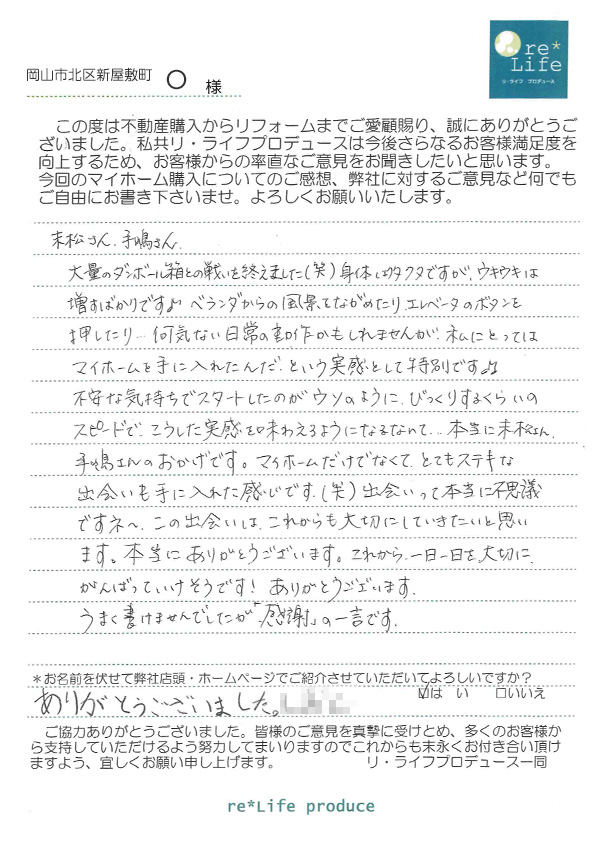 re*
Life
リ・ライフ プロデュース
岡山市北区新屋敷町 〇 様
この度は不動産購入からリフォームまでご愛顧賜り、誠にありがとうご
ざいました。私共リ・ライフプロデュースは今後さらなるお客様満足度を
向上するため、お客様からの率直なご意見をお聞きしたいと思います。
今回のマイホーム購入についてのご感想、弊社に対するご意見など何でも
ご自由にお書き下さいませ。よろしくお願いいたします。
末松さん、手嶋さん、
大量のダンボール箱との戦いを終えました(笑)身体はクタクタですが、ウキウキは
増すばかりです♪ ベランダからの風景をながめたり、エレベータのボタンを
押したり…何気ない日常の動作かもしれませんが、私にとっては
マイホームを手に入れたんだ、という実感として特別です♪
不安な気持ちでスタートしたのがウソのように、びっくりするくらいの
スピードで、こうした実感を味わえるようになるなんて…本当に末松さん、
手嶋さんのおかげです。マイホームだけでなくて、とてもステキな
出会いも手に入れた感じです。(笑)出会いって本当に不思議
ですネ〜、この出会いは、これからも大切にしていきたいと思い
ます。本当にありがとうございます。これから、一日一日を大切に、
がんばっていけそうです! ありがとうございます。
うまく書けませんでしたが「感謝」の一言です。
*お名前を伏せて弊社店頭・ホームページでご紹介させていただいてよろしいですか?
☑は い □いいえ
ありがとうございました。
ご協力ありがとうございました。皆様のご意見を真摯に受けとめ、多くのお客様か
ら支持していただけるよう努力してまいりますのでこれからも末永くお付き合い頂け
ますよう、宜しくお願い申し上げます。 リ・ライフプロデュース一同
re*Life produce